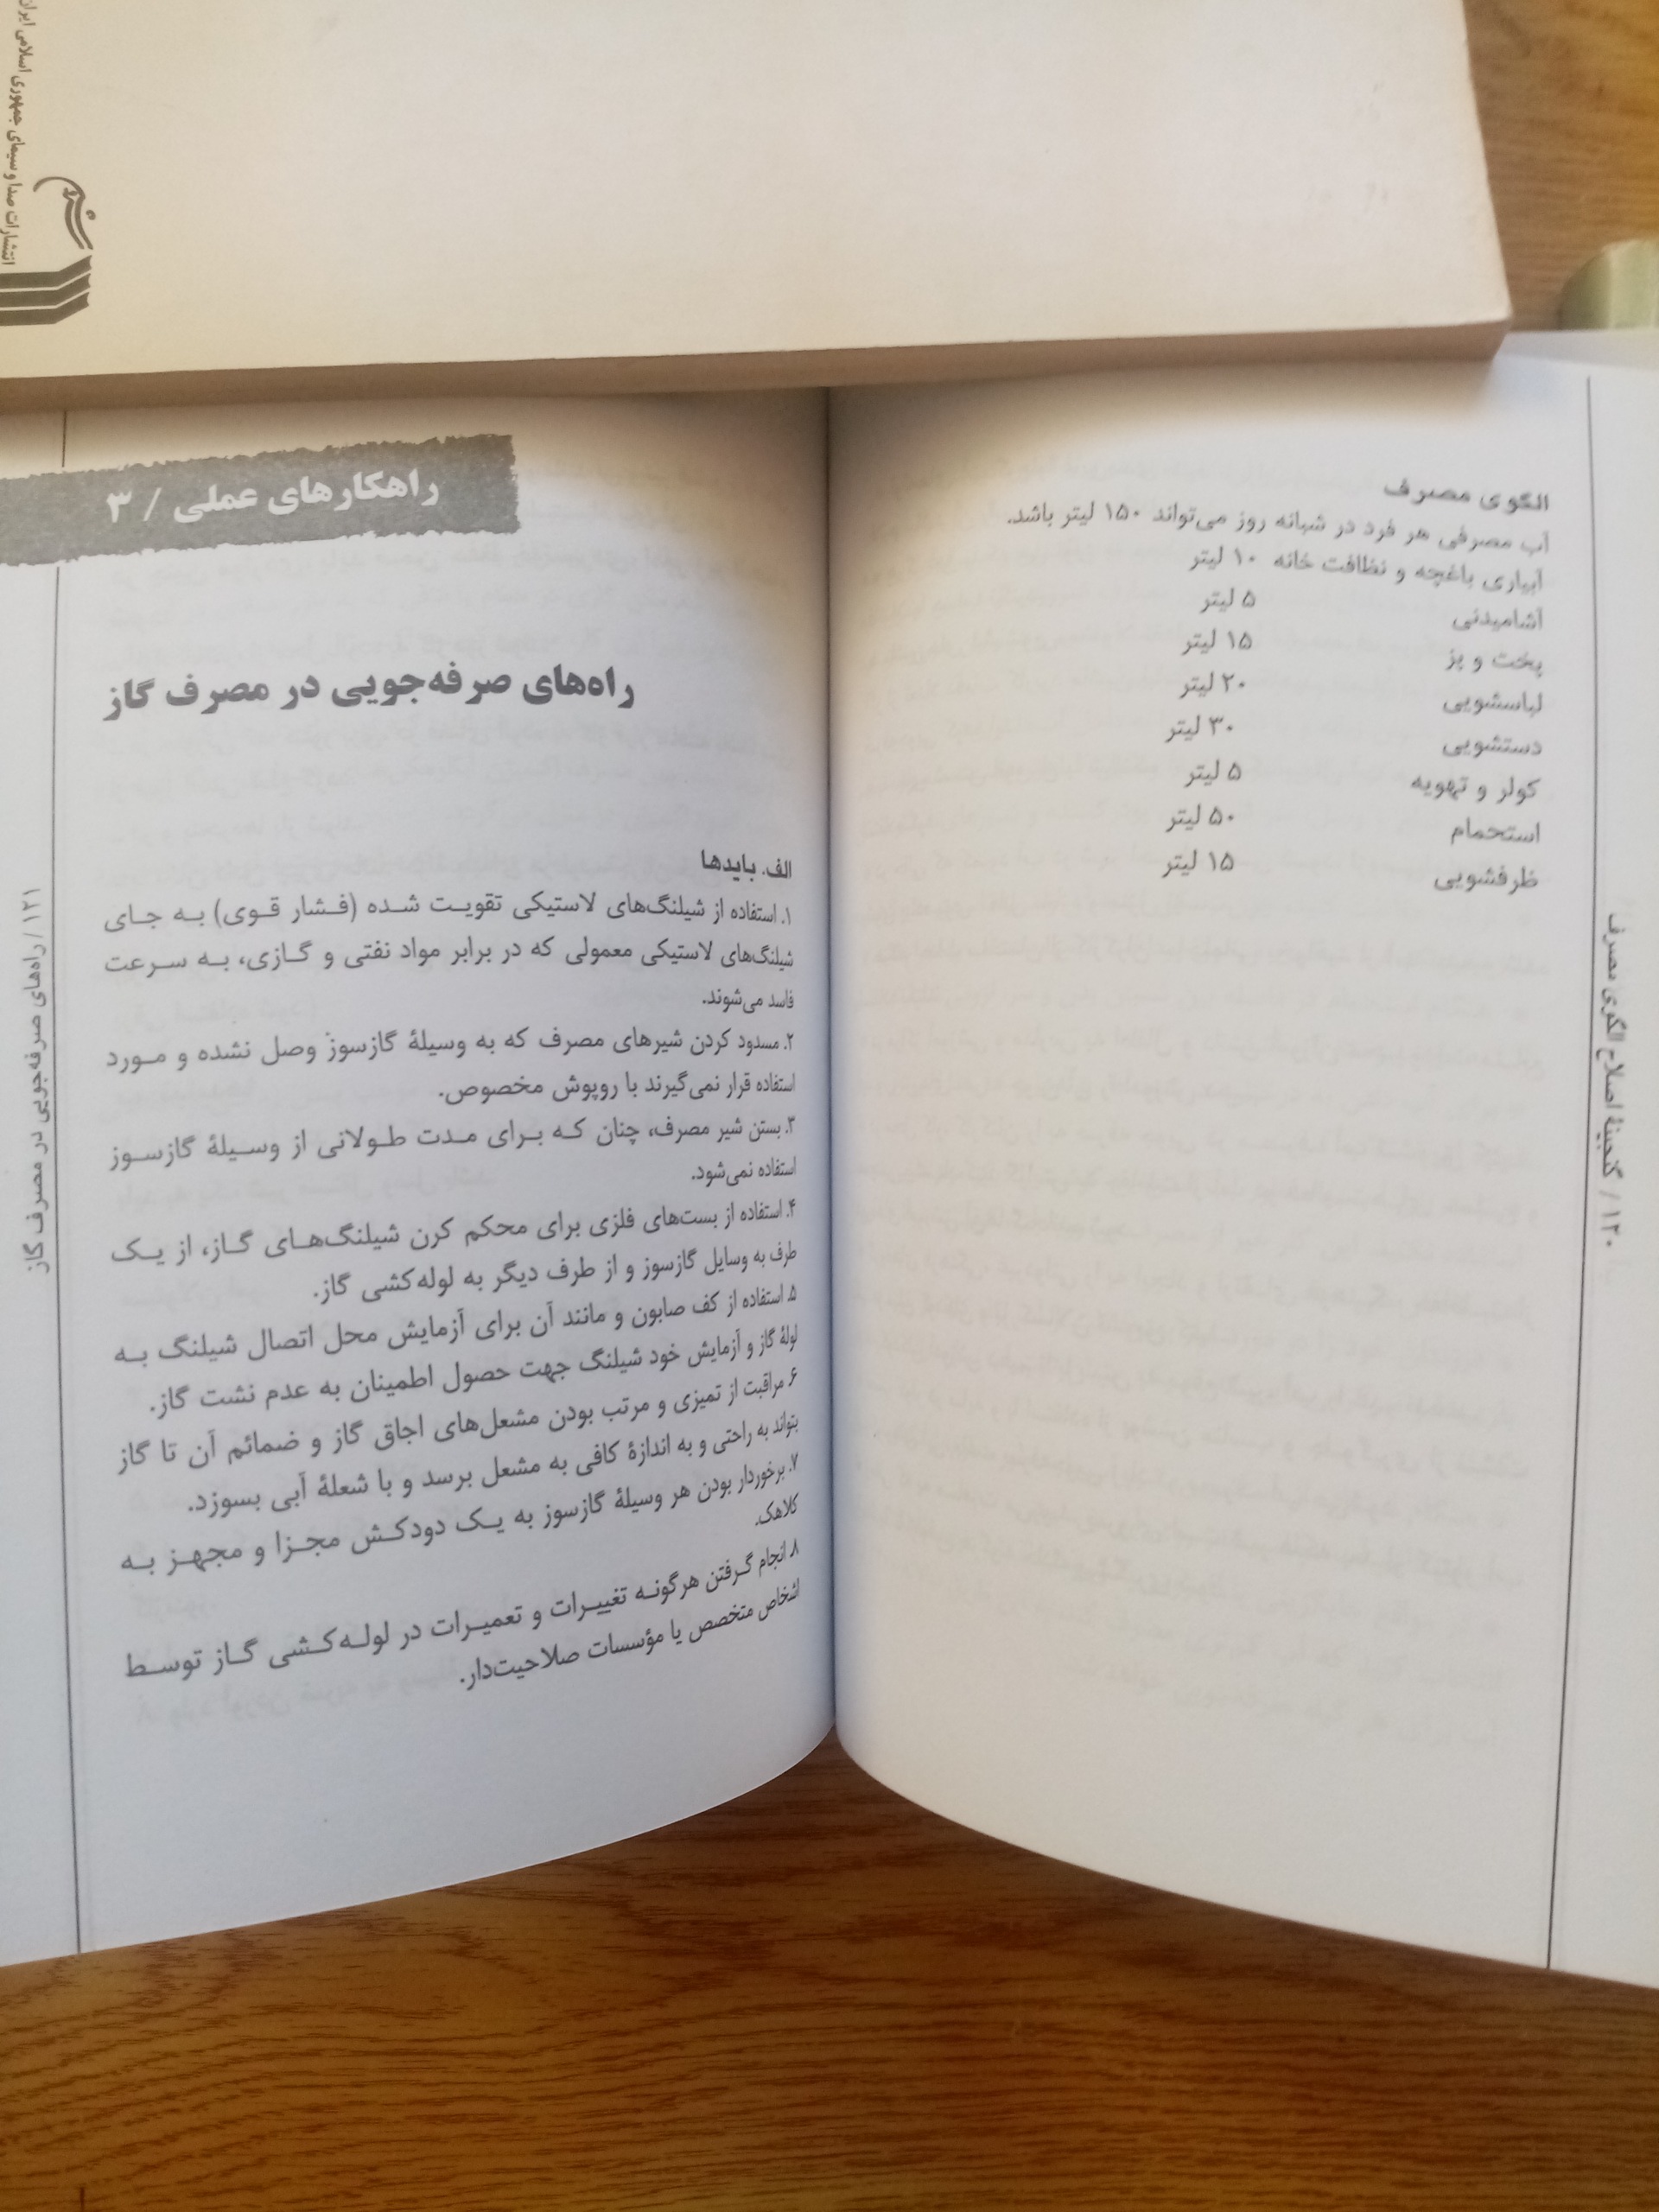 انتشارات صدا و سیمای جمهوری اسلامی ایران
سروش
الگوی مصرف
آب مصرفی هر فرد در شبانه روز می‌تواند ۱۵۰ لیتر باشد.
آبیاری باغچه و نظافت خانه ۱۰ لیتر
آشامیدنی ۵ لیتر
پخت و پز ۱۵ لیتر
لباسشویی ۲۰ لیتر
دستشویی ۳۰ لیتر
کولر و تهویه ۵ لیتر
استحمام ۵۰ لیتر
ظرفشویی ۱۵ لیتر
۱۲۰ / گنجینهٔ اصلاح الگوی مصرف
راهکارهای عملی / ۳
راه‌های صرفه‌جویی در مصرف گاز
الف. بایدها
۱. استفاده از شیلنگ‌های لاستیکی تقویت شده (فشار قوی) به جای
شیلنگ‌های لاستیکی معمولی که در برابر مواد نفتی و گازی، به سرعت
فاسد می‌شوند.
۲. مسدود کردن شیرهای مصرف که به وسیلهٔ گازسوز وصل نشده و مورد
استفاده قرار نمی‌گیرند با روپوش مخصوص.
۳. بستن شیر مصرف، چنان که برای مدت طولانی از وسیلهٔ گازسوز
استفاده نمی‌شود.
۴. استفاده از بست‌های فلزی برای محکم کرن شیلنگ‌های گاز، از یک
طرف به وسایل گازسوز و از طرف دیگر به لوله‌کشی گاز.
۵. استفاده از کف صابون و مانند آن برای آزمایش محل اتصال شیلنگ به
لولهٔ گاز و آزمایش خود شیلنگ جهت حصول اطمینان به عدم نشت گاز.
۶. مراقبت از تمیزی و مرتب بودن مشعل‌های اجاق گاز و ضمائم آن تا گاز
بتواند به راحتی و به اندازهٔ کافی به مشعل برسد و با شعلهٔ آبی بسوزد.
۷. برخوردار بودن هر وسیلهٔ گازسوز به یک دودکش مجزا و مجهز به
کلاهک.
۸. انجام گرفتن هرگونه تغییرات و تعمیرات در لوله‌کشی گاز توسط
اشخاص متخصص یا مؤسسات صلاحیت‌دار.
۱۲۱ / راه‌های صرفه‌جویی در مصرف گاز